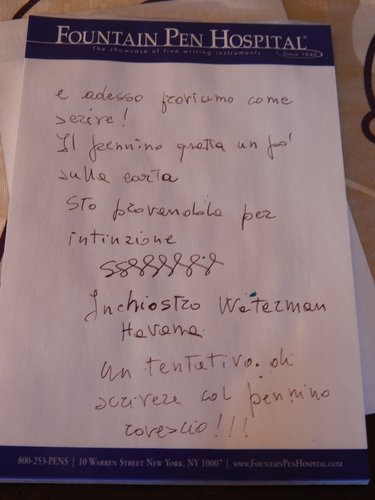 FOUNTAIN PEN HOSPITAL®
The showcase of fine writing instruments
Since 1946
e adesso proviamo come
scrive!
Il pennino gratta un po'
sulla carta
Sto provandolo per
intinzione
Inchiostro Waterman
Havana
Un tentativo di
scrivere col pennino
rovescio!!!
800-253-PENS | 10 WARREN STREET NEW YORK, NY 10007 | WWW.FOUNTAINPENHOSPITAL.COM